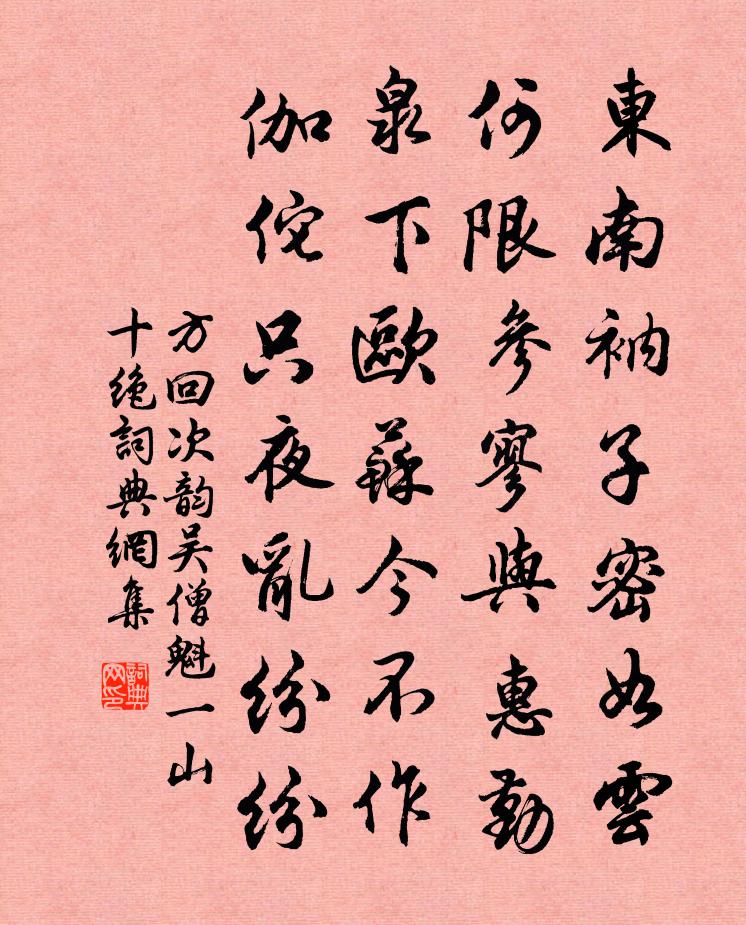 東南衲子密如雲
何限參寥與惠勤
泉下歐蘇今不作
伽佗只夜亂紛紛
方回次韵吴僧魁一山
十绝詞典網集
詞典网印